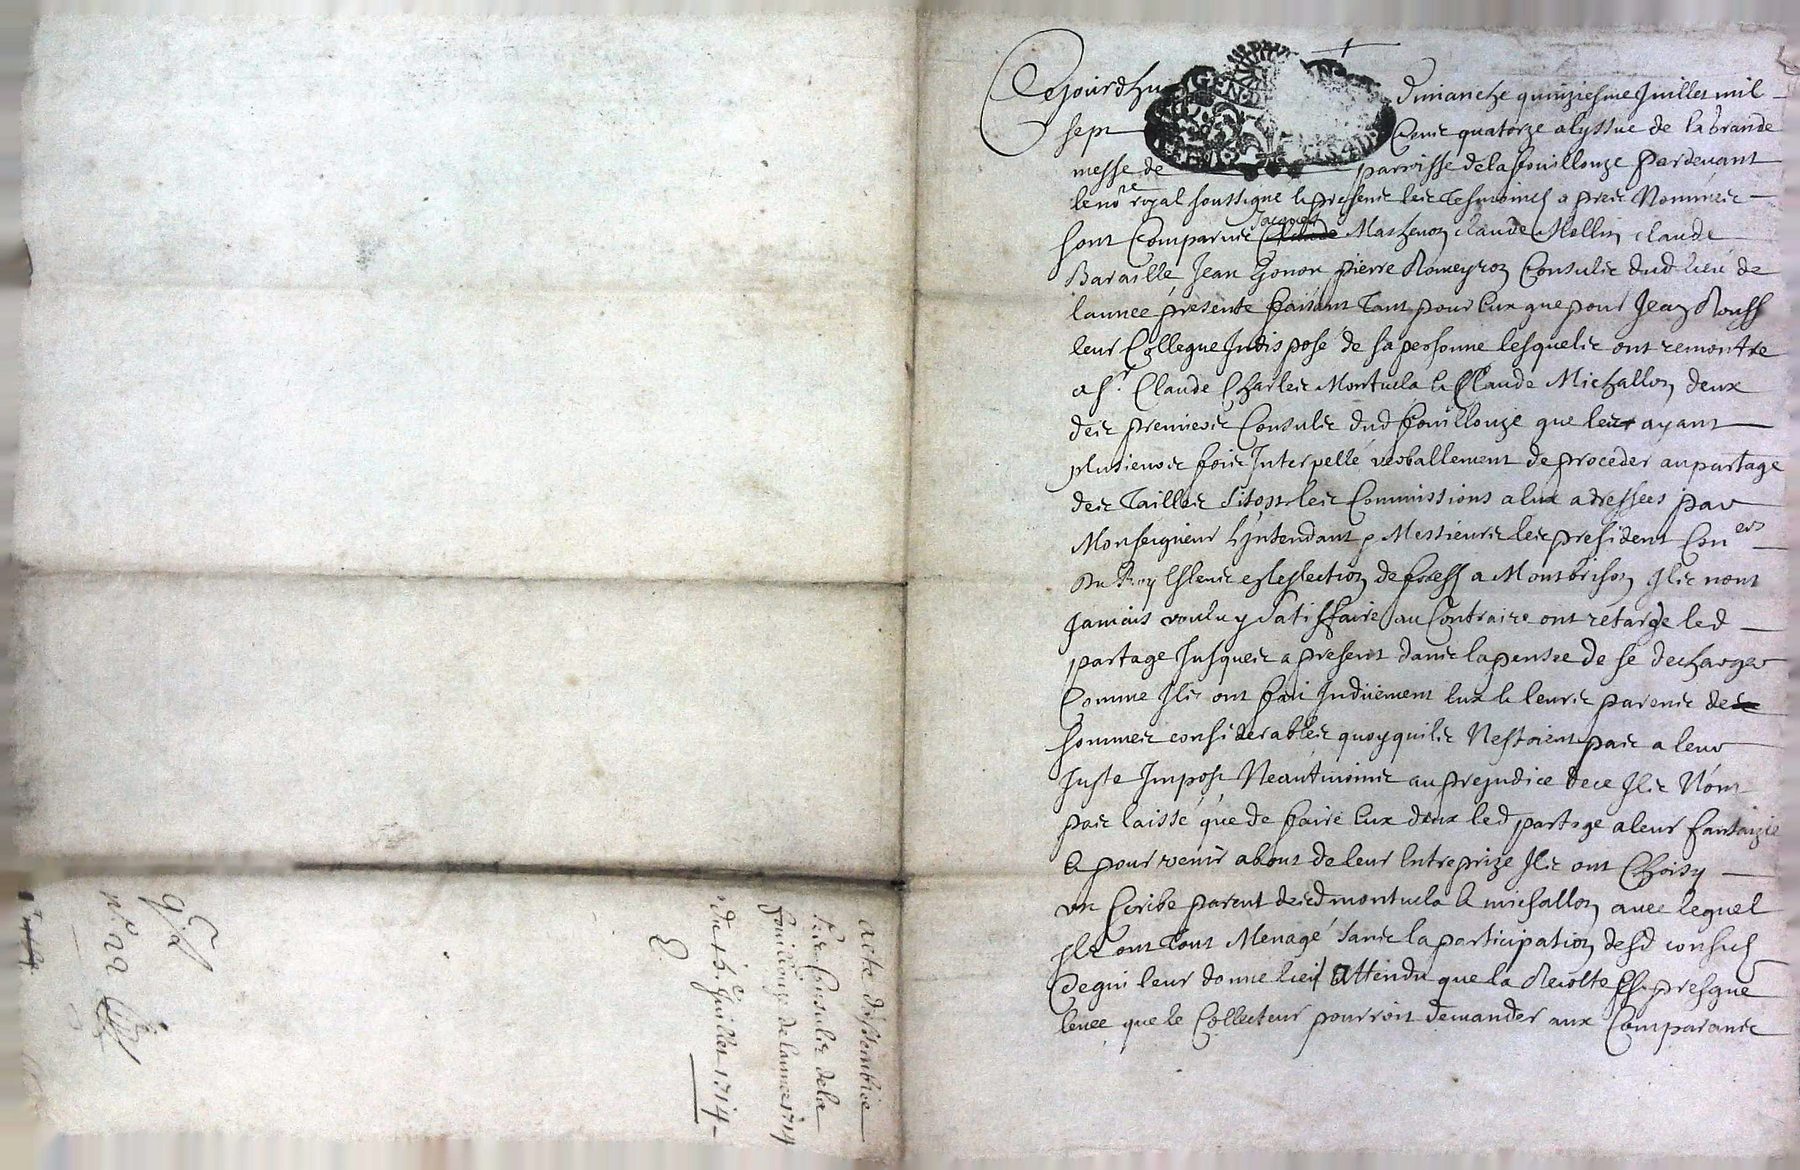 Cejourdhuy dimanche quinziesme Juillet mil
sept Cents quatorze a lyssue de la Grande
messe de parroisse de la fouillouze pardevant
le nore royal soussigné & presents les tesmoings apres Nommés
sont Comparus Jacques Mazenon claude Mollin claude
Baraille Jean Gonon pierre Romeyron Consuls dud lieu de
lannee presente faisant tant pour Eux que pour Jean Rouss
leur Collegue Indisposé de sa personne lesquels ont remontre
a Sr. Claude Charles Montuela & Claude Michallon deux
des premiers Consuls dud fouillouze que les ayant
plusieurs fois Interpellé verballement de proceder au partage
des Tailles sitost les Commissions a Eux adressees par
Monseigneur Lyntendant & Messieurs les president Coners
Du Roy Esleus en leslection de forest a Montbrison Ils nont
Jamais voulu y satisffaire au Contraire ont retardé led
partage Jusques a present dans la pensee de se descharger
Comme Ils ont fait Indüement Eux & leurs parents de
sommes considerables quoyquils Nestoient pas a leur
Juste Impost Neantmoins au prejudice de ce Ils Nont
pas laissé que de faire Eux deux led partage a leur fantaizie
& pour venir about de leur Entreprize Ils ont Choisy
un Scribe parent desd montuela & michallon avec lequel
Ils ont tout Menagé sans la participation desd consuls
Ce qui leur donne lieu attendu que la Recolte Est presque
levee que le Collecteur pourroit demander aux Comparants
acte dissentive
les Consuls de la
fouillouze de lannee 1714
du 15e Juillet 1714